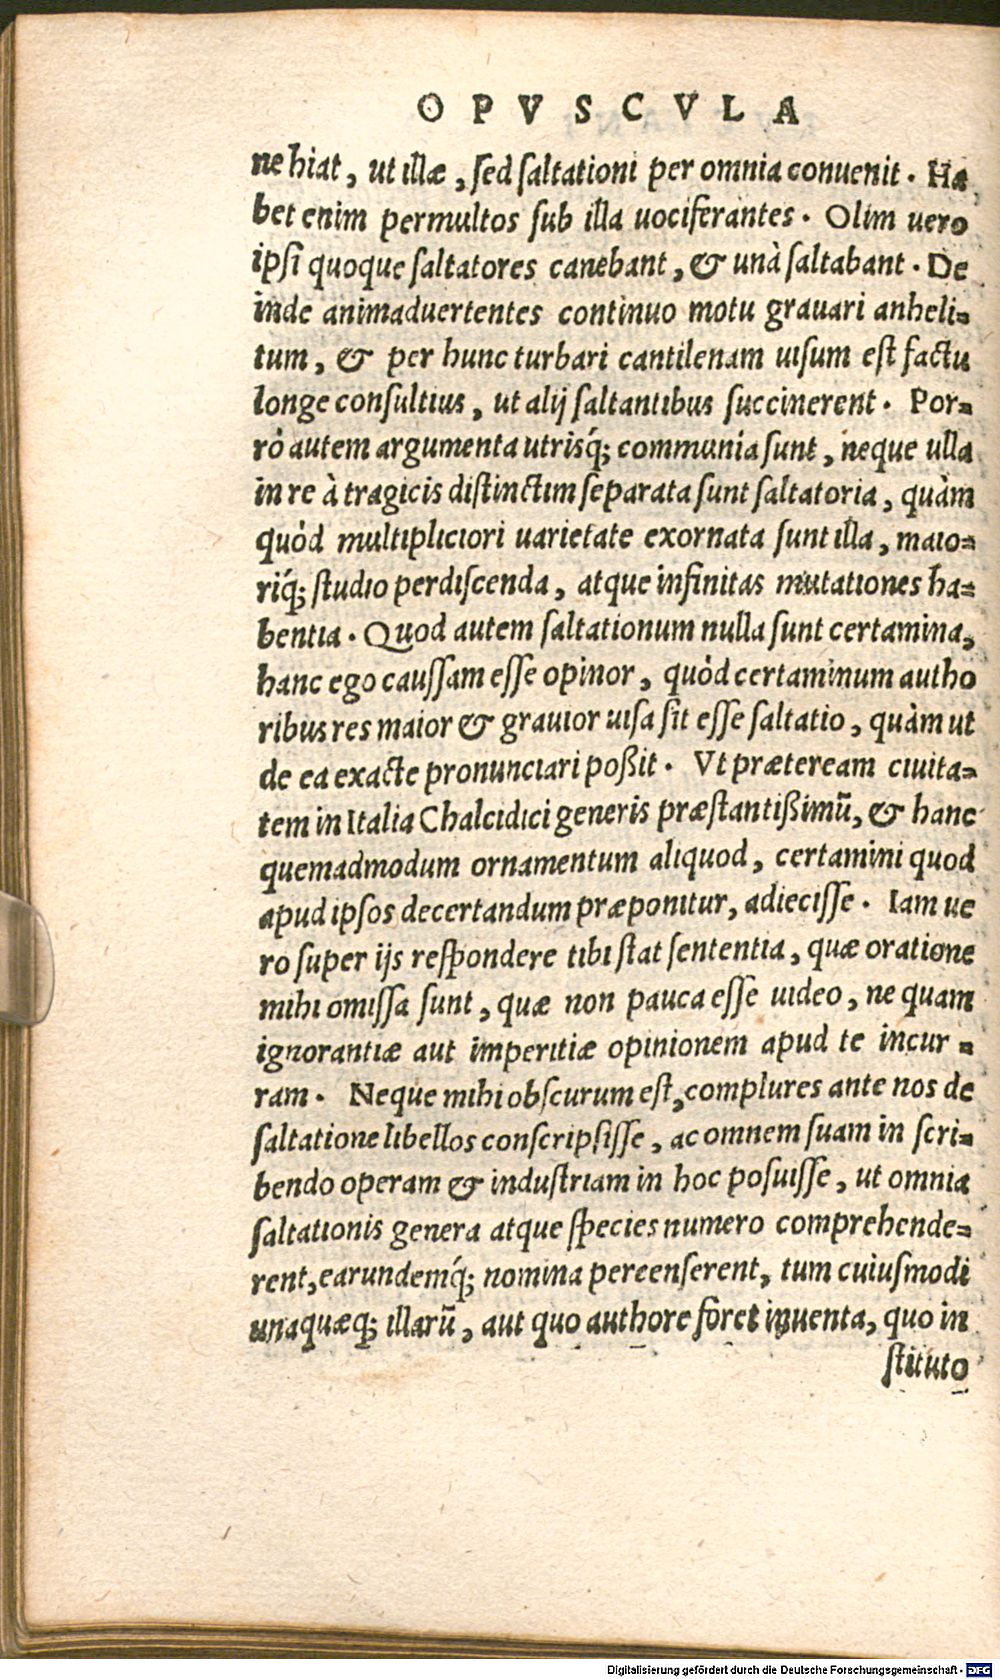 OPVSCVLA
ne hiat, ut illæ, sed saltationi per omnia conuenit. Ha
bet enim permultos sub illa uociferantes. Olim uero
ipsi quoque saltatores canebant, & unà saltabant. De
inde animaduertentes continuo motu grauari anheli-
tum, & per hunc turbari cantilenam uisum est factu
longe consultius, ut alij saltantibus succinerent. Por-
rò autem argumenta utrisq́; communia sunt, neque ulla
in re à tragicis distinctim separata sunt saltatoria, quàm
quòd multipliciori uarietate exornata sunt illa, maio-
riq́; studio perdiscenda, atque infinitas mutationes ha-
bentia. Quod autem saltationum nulla sunt certamina,
hanc ego caussam esse opinor, quòd certaminum autho
ribus res maior & grauior uisa sit esse saltatio, quàm ut
de ea exacte pronunciari poßit. Vt præteream ciuita-
tem in Italia Chalcidici generis præstantißimũ, & hanc
quemadmodum ornamentum aliquod, certamini quod
apud ipsos decertandum præponitur, adiecisse. Iam ue
ro super ijs respondere tibi stat sententia, quæ oratione
mihi omissa sunt, quæ non pauca esse uideo, ne quam
ignorantiæ aut imperitiæ opinionem apud te incur-
ram. Neque mihi obscurum est, complures ante nos de
saltatione libellos conscripsisse, ac omnem suam in scri-
bendo operam & industriam in hoc posuisse, ut omnia
saltationis genera atque species numero comprehende-
rent, earundemq́; nomina percenserent, tum cuiusmodi
unaquæq; illarũ, aut quo authore foret inuenta, quo in
stituto
Digitalisierung gefördert durch die Deutsche Forschungsgemeinschaft - DFG